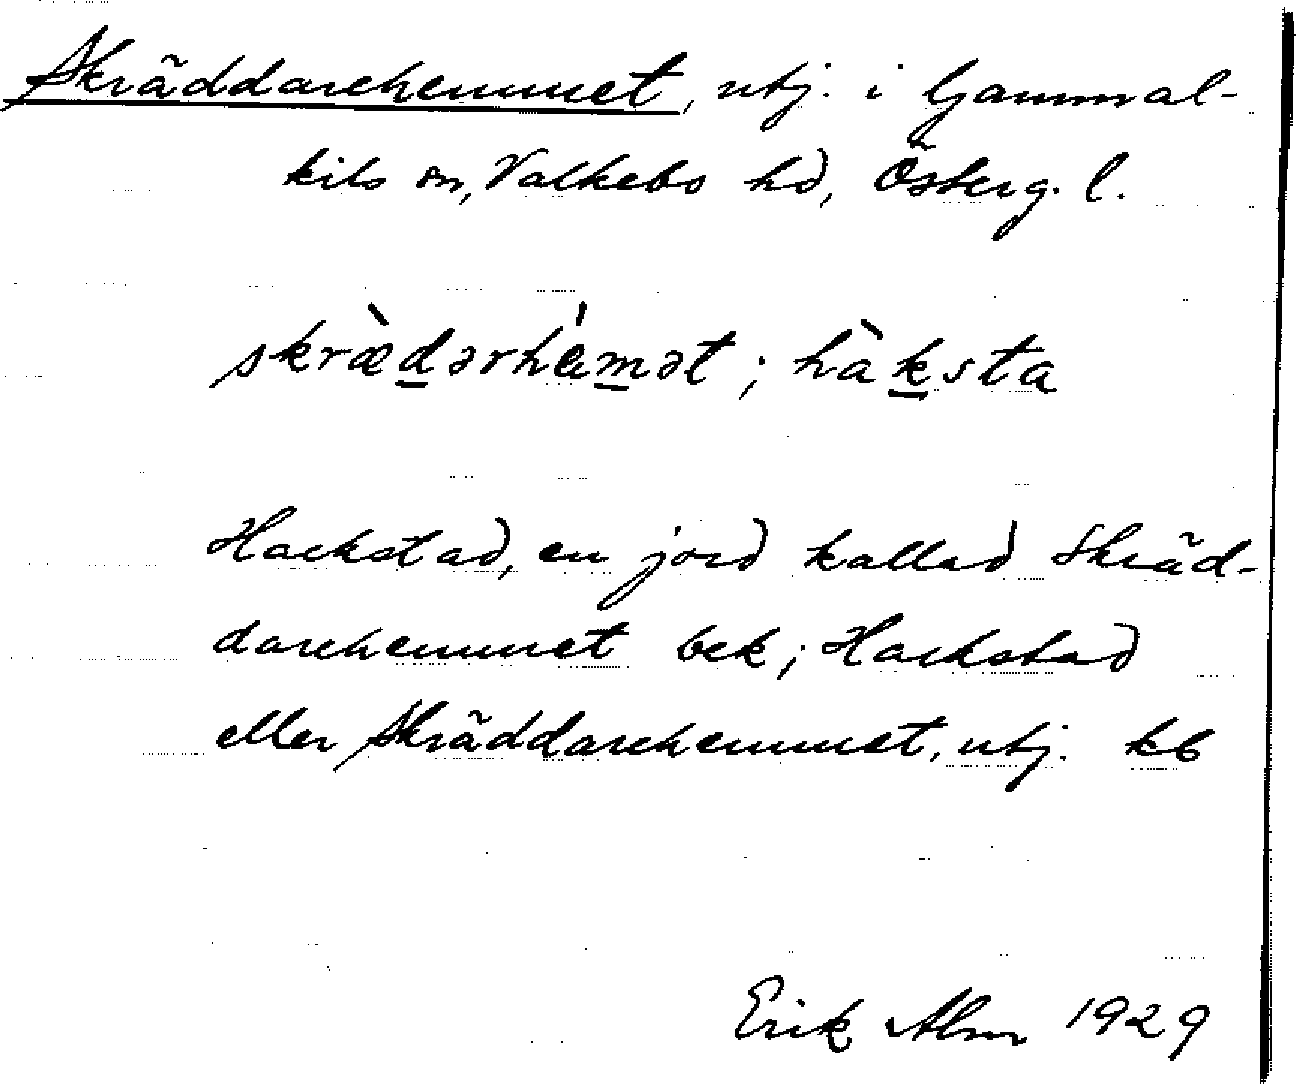 Skräddarehemmet, utj. i Gammal-
kils sn, Valkebo hd, Österg. l.
skræ̀dərhémət ; hàksta
Hackstad, en jord kallad Skräd-
darehemmet bek; Hackstad
eller Skräddarehemmet, utj. kb
Erik Alm 1929